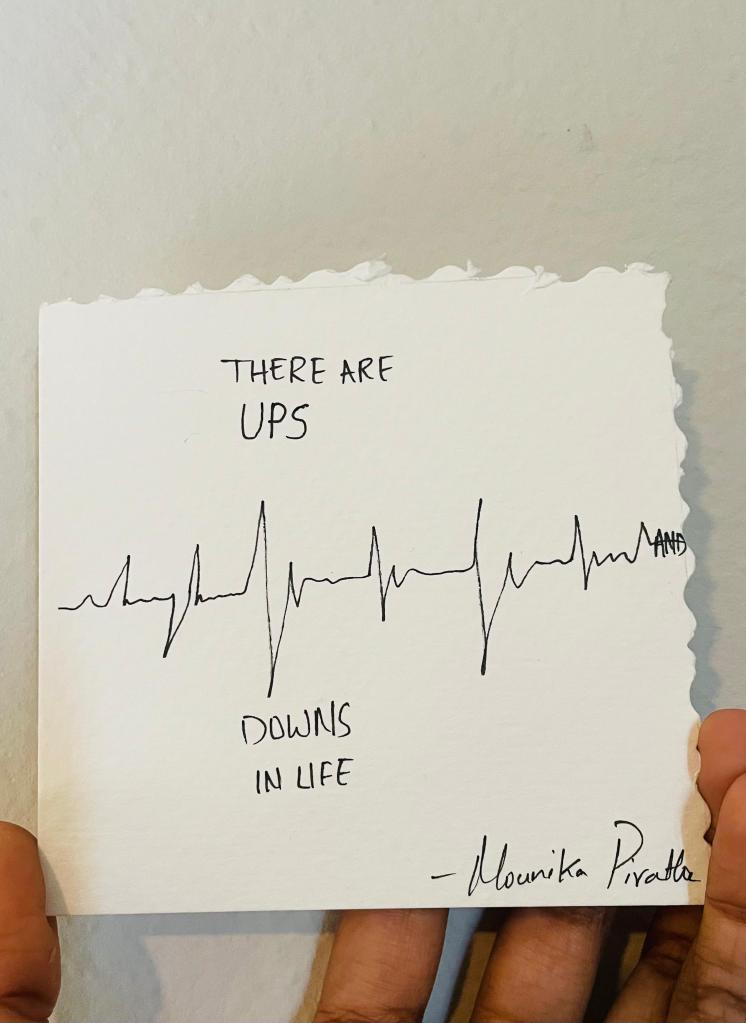 THERE ARE
UPS
AND
DOWNS
IN LIFE
- Mounika Piratla